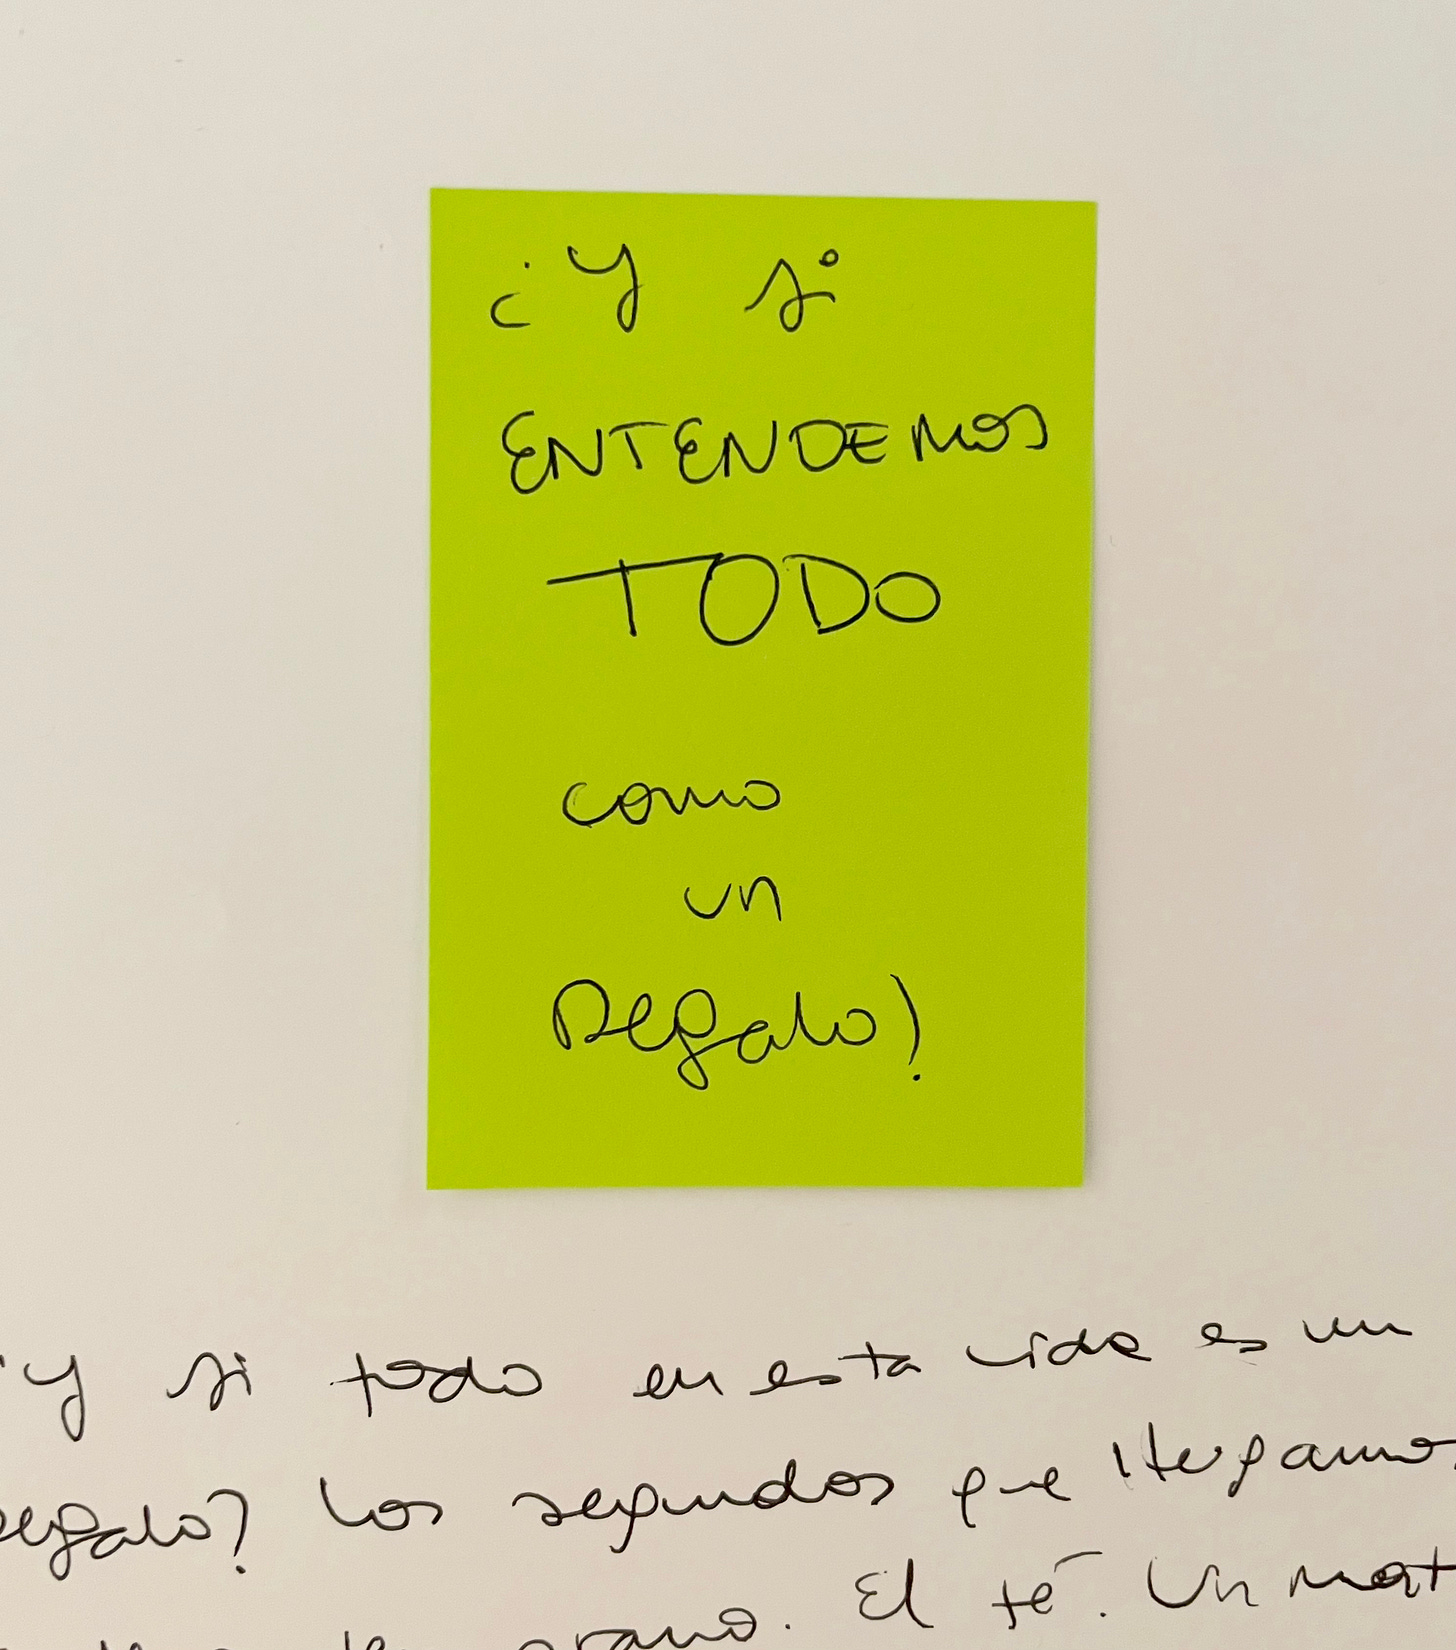 ¿Y si
ENTENDEMOS
TODO
como
un
Regalo?
¿Y si todo en esta vida es un
regalo? Los segundos que llegamos
El té. Un mat